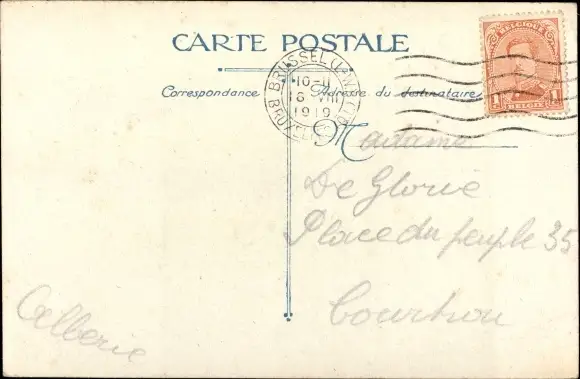 CARTE POSTALE
BELGIQUE
1 1
BELGIË
BRUSSEL
10-11
16 VIII
1919
Correspondance
Adresse du destinataire
Madame
De Glorie
Place du peuple 35
Courtrai
Alberie